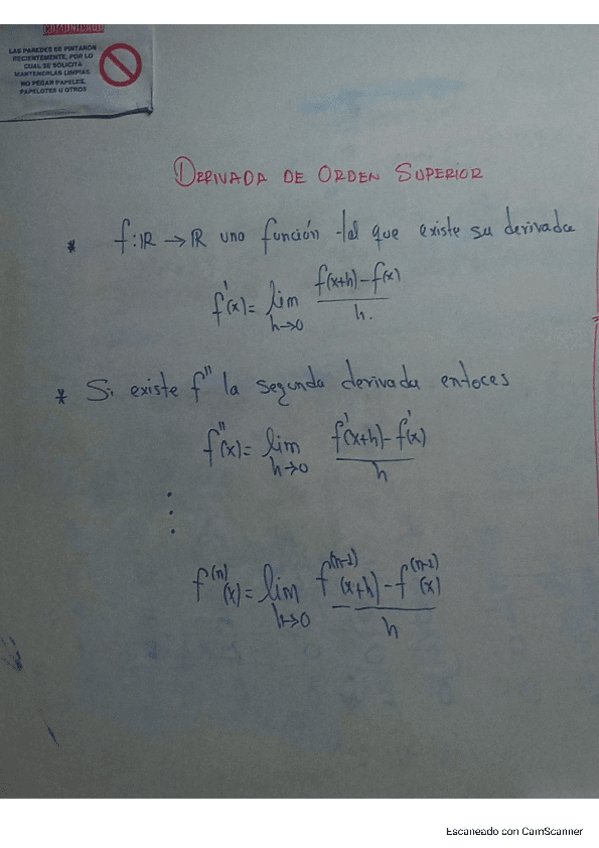 COMUNICADO
LAS PAREDES SE PINTARON
RECIENTEMENTE, POR LO
CUAL SE SOLICITA
MANTENERLAS LIMPIAS
NO PEGAR PAPELES,
PAPELOTES U OTROS
DERIVADA DE ORDEN SUPERIOR
* f: ℝ → ℝ una función tal que existe su derivada
f'(x) = lim h→0 f(x+h) - f(x) / h.
* Si existe f'' la segunda derivada entoces
f''(x) = lim h→0 f'(x+h) - f'(x) / h
⋮
f^(n)(x) = lim h→0 f^(n-1)(x+h) - f^(n-1)(x) / h
Escaneado con CamScanner